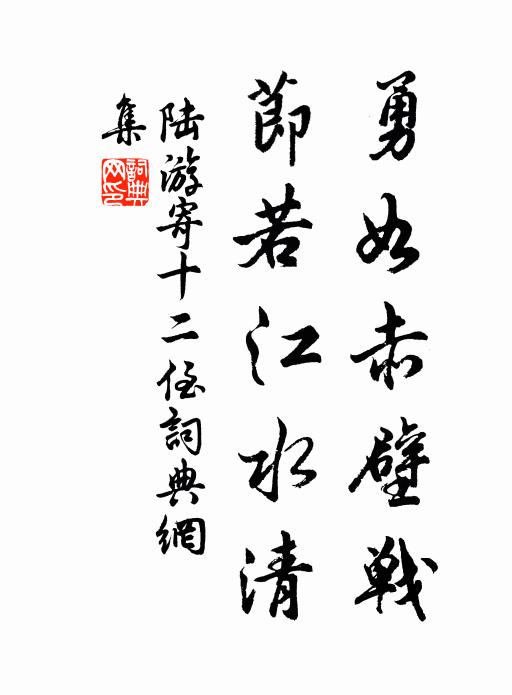 勇如赤壁戰
節若江水清
陆游寄十二侄詞典網
集
詞典
网印